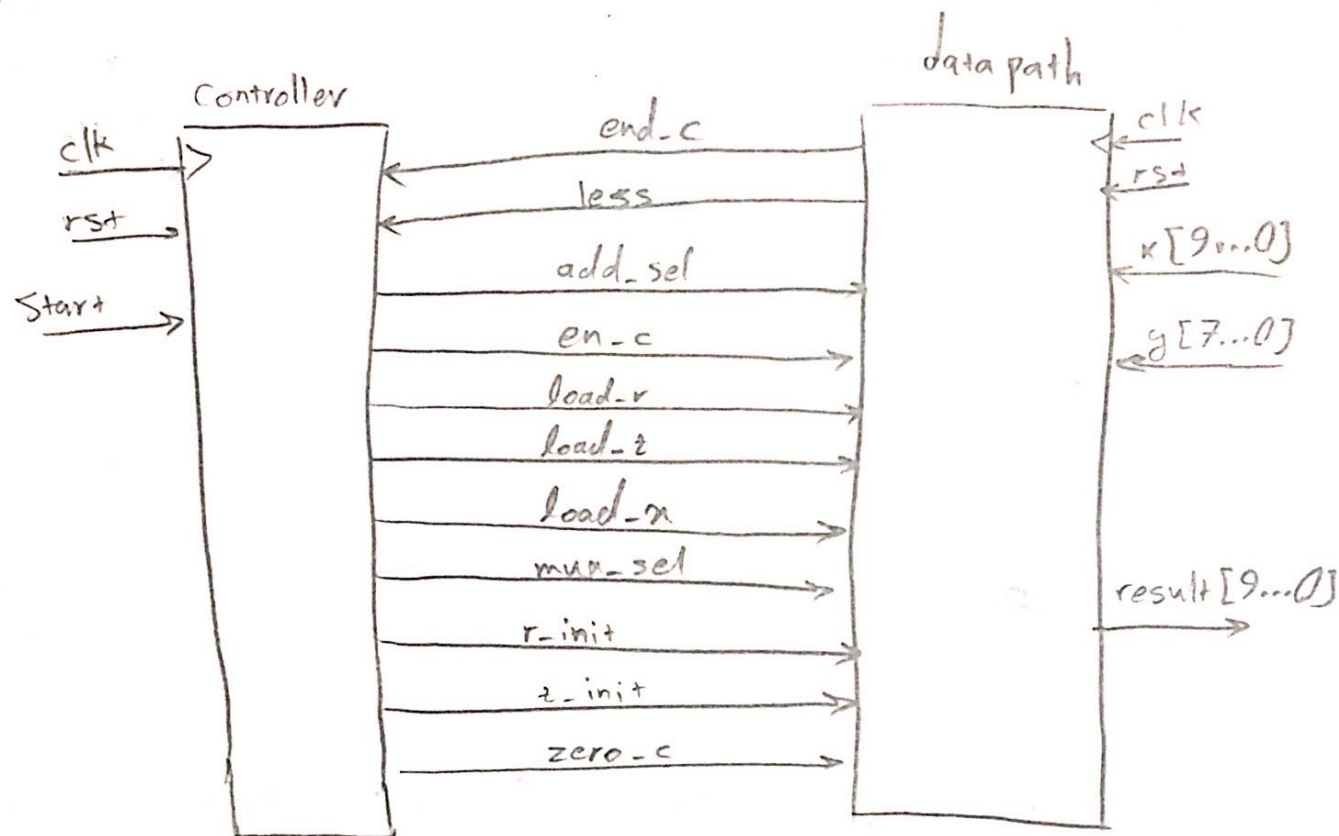 data path
Controller
clk
rst
Start
end_c
less
add_sel
en_c
load_r
load_z
load_x
mux_sel
r_init
z_init
zero_c
clk
rst
x[9...0]
y[7...0]
result[9...0]